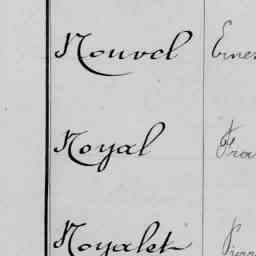 Nouvel Ernes
Noyal Fran
Noyalet Pierr